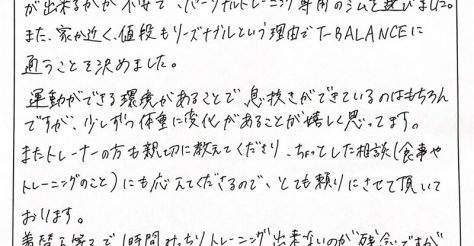 が出来るかが不安で、パーソナルトレーニング専用のジムを選びました。
また、家が近く、値段もリーズナブルという理由でT-BALANCEに
通うことを決めました。
運動ができる環境があることで息抜きができているのはもちろん
ですが、少しずつ体重に変化があることが嬉しく思ってます。
またトレーナーの方も親切に教えてくださり、ちょっとした相談(食事や
トレーニングのこと)にも応えてくださるので、とても頼りにさせて頂いて
おります。
着替え等で1時間みっちりトレーニング出来ないのが残念ですが